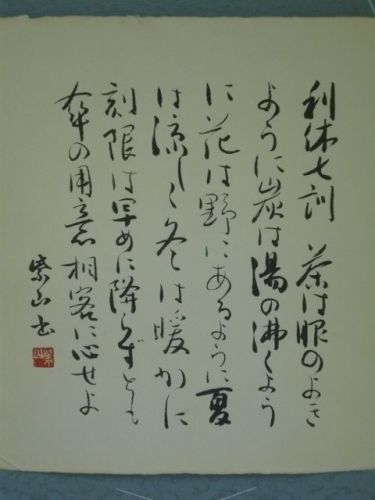 利休七訓 茶は服のよき
ように炭は湯の沸くよう
に花は野にあるように夏
は涼しく冬は暖かに
刻限は早めに降らずとも
傘の用意 相客に心せよ
紫山書